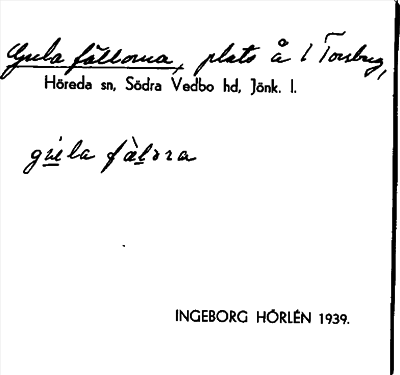 Gula fållorna, plats å 1 Torsberg,
Höreda sn, Södra Vedbo hd, Jönk. l.
gula fålora
INGEBORG HÖRLÉN 1939.